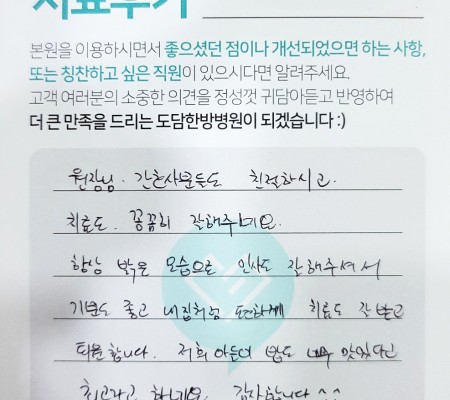 치료후기
본원을 이용하시면서 좋으셨던 점이나 개선되었으면 하는 사항,
또는 칭찬하고 싶은 직원이 있으시다면 알려주세요.
고객 여러분의 소중한 의견을 정성껏 귀담아듣고 반영하여
더 큰 만족을 드리는 도담한방병원이 되겠습니다 :)
원장님. 간호사분들도 친절하시고.
치료도. 꼼꼼히 잘해주네요.
항상 밝은 모습으로 인사도 잘해주셔서
기분도 좋고 내집처럼 편하게 치료도 잘 받고
퇴원합니다. 저희 아들이 밥도 너무 맛있다고
최고라고 하네요. 감사합니다 ^^